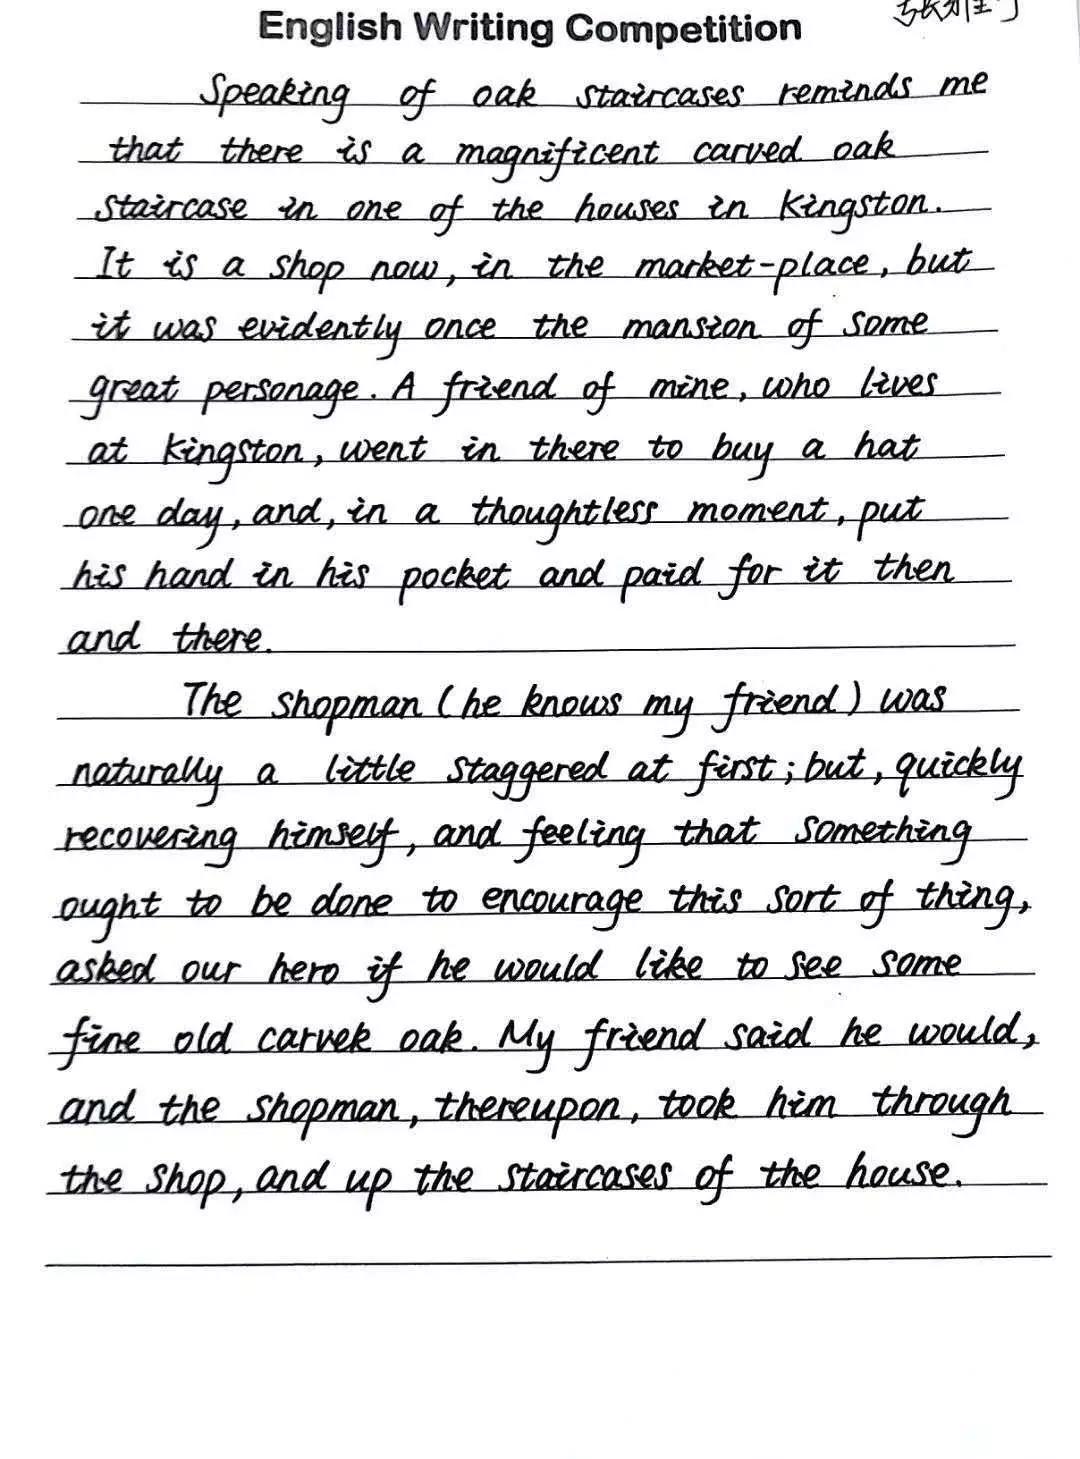 English Writing Competition
Speaking of oak staircases reminds me
that there is a magnificent carved oak
staircase in one of the houses in Kingston.
It is a shop now, in the market-place, but
it was evidently once the mansion of some
great personage. A friend of mine, who lives
at Kingston, went in there to buy a hat
one day, and, in a thoughtless moment, put
his hand in his pocket and paid for it then
and there.
The shopman (he knows my friend) was
naturally a little staggered at first; but, quickly
recovering himself, and feeling that something
ought to be done to encourage this sort of thing,
asked our hero if he would like to see some
fine old carvek oak. My friend said he would,
and the shopman, thereupon, took him through
the shop, and up the staircases of the house.